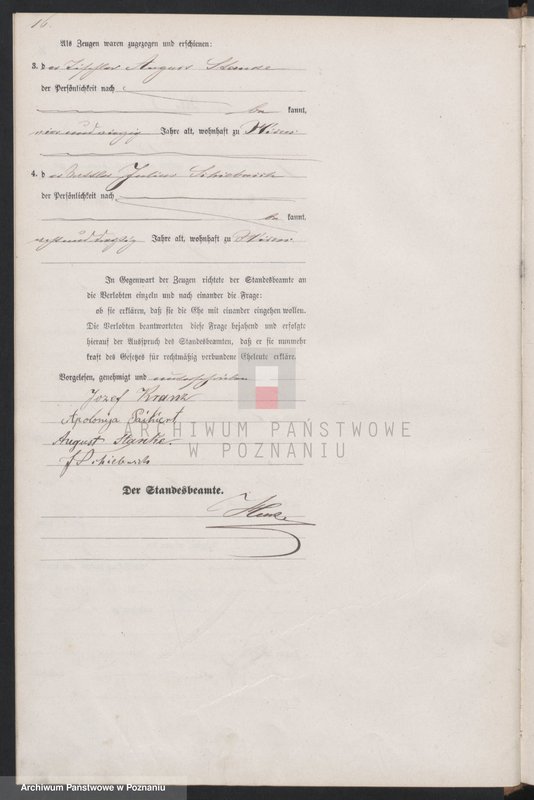 16.
Als Zeugen waren zugezogen und erschienen:
3. der Tischler August Stanke
der Persönlichkeit nach
be kannt,
Jahre alt, wohnhaft zu
4. der Julius
der Persönlichkeit nach
be kannt,
Jahre alt, wohnhaft zu
In Gegenwart der Zeugen richtete der Standesbeamte an
die Verlobten einzeln und nach einander die Frage:
ob sie erklären, daß sie die Ehe mit einander eingehen wollen.
Die Verlobten beantworteten diese Frage bejahend und erfolgte
hierauf der Ausspruch des Standesbeamten, daß er sie nunmehr
kraft des Gesetzes für rechtmäßig verbundene Eheleute erkläre.
Vorgelesen, genehmigt und unterschrieben
Jozef Kranz
Apolonija
ARCHIWUM PAŃSTWOWE
August Stanke.
W POZNANIU
Der Standesbeamte.
Archiwum Państwowe w Poznaniu